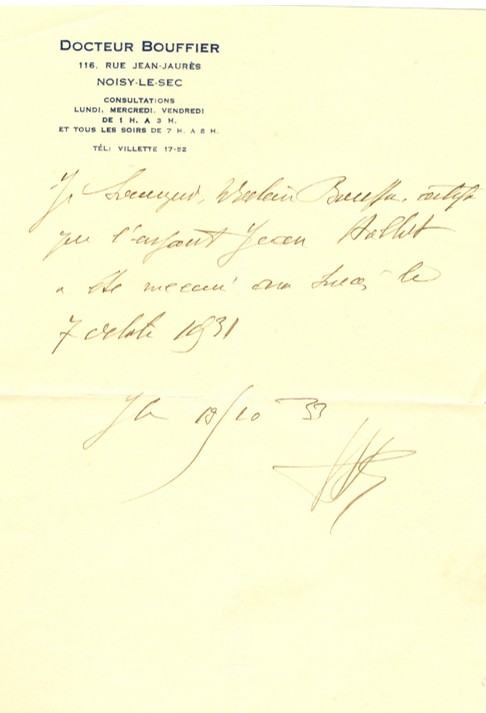 DOCTEUR BOUFFIER
116, RUE JEAN-JAURÈS
NOISY-LE-SEC
CONSULTATIONS
LUNDI, MERCREDI, VENDREDI
DE 1 H. A 3 H.
ET TOUS LES SOIRS DE 7 H. A 8 H.
TÉL: VILLETTE 17-52
Je soussigné, Docteur Bouffier, certifie
que l'enfant Jean
a été vacciné avec succès le
7 octobre 1931
19/10 33